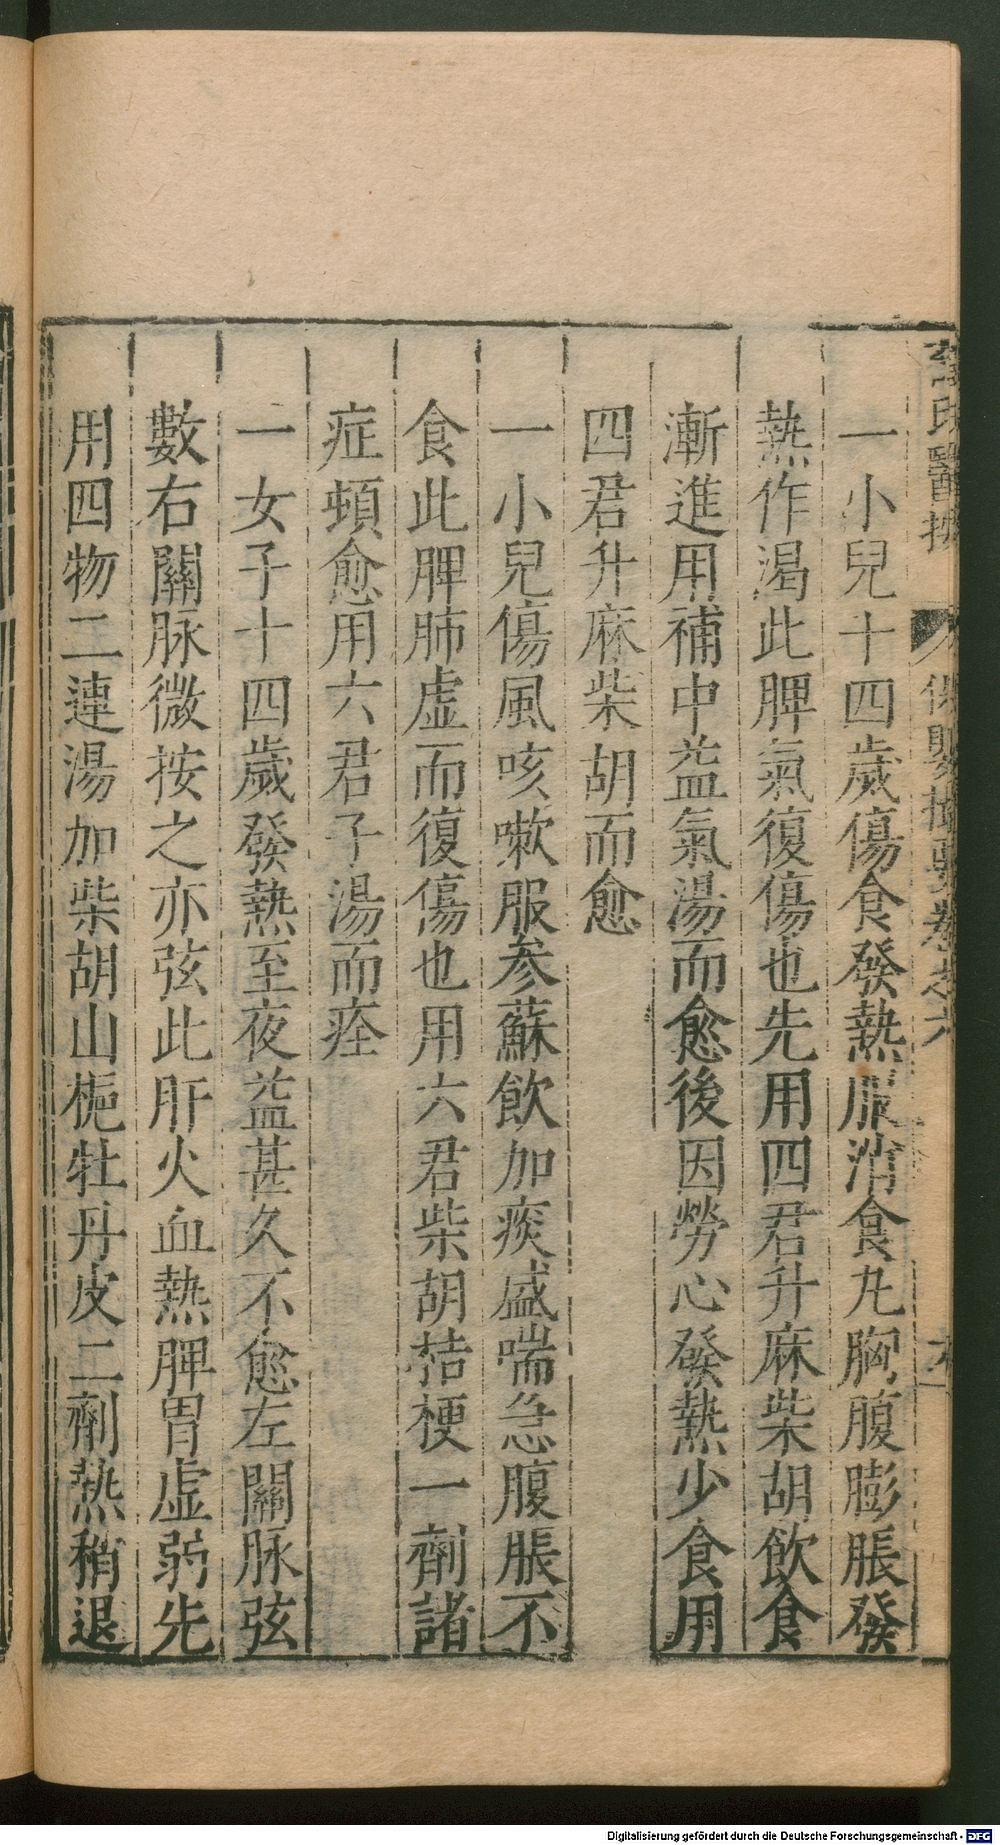 薛氏醫按 保嬰撮要卷之六
一小兒十四歲傷食發熱服消食丸胸腹膨脹發
熱作渴此脾氣復傷也先用四君升麻柴胡飲食
漸進用補中益氣湯而愈後因勞心發熱少食用
四君升麻柴胡而愈
一小兒傷風咳嗽服參蘇飲加痰盛喘急腹脹不
食此脾肺虛而復傷也用六君柴胡桔梗一劑諸
症頓愈用六君子湯而痊
一女子十四歲發熱至夜益甚久不愈左關脉弦
數右關脉微按之亦弦此肝火血熱脾胃虛弱先
用四物二連湯加柴胡山梔牡丹皮二劑熱稍退
Digitalisierung gefördert durch die Deutsche Forschungsgemeinschaft - DFG